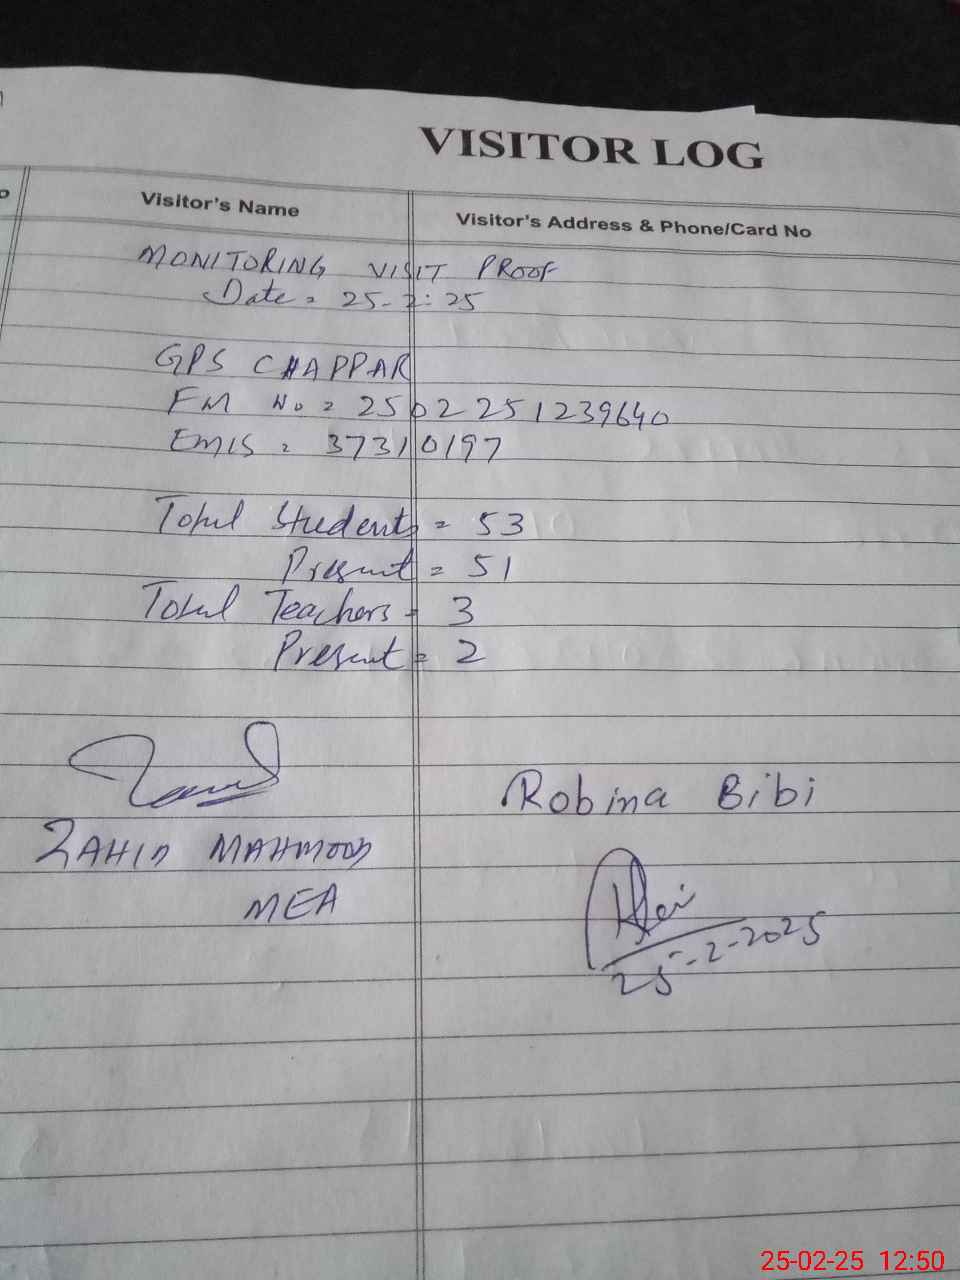 VISITOR LOG
Visitor's Name
Visitor's Address & Phone/Card No
MONITORING VISIT PROOF
Date = 25-2-25
GPS CHAPPAR
FM No = 2502251239640
EMIS = 37310197
Total Students = 53
Present = 51
Total Teachers = 3
Present = 2
ZAHID MAHMOOD
MEA
Robina Bibi
25-2-2025
25-02-25 12:50